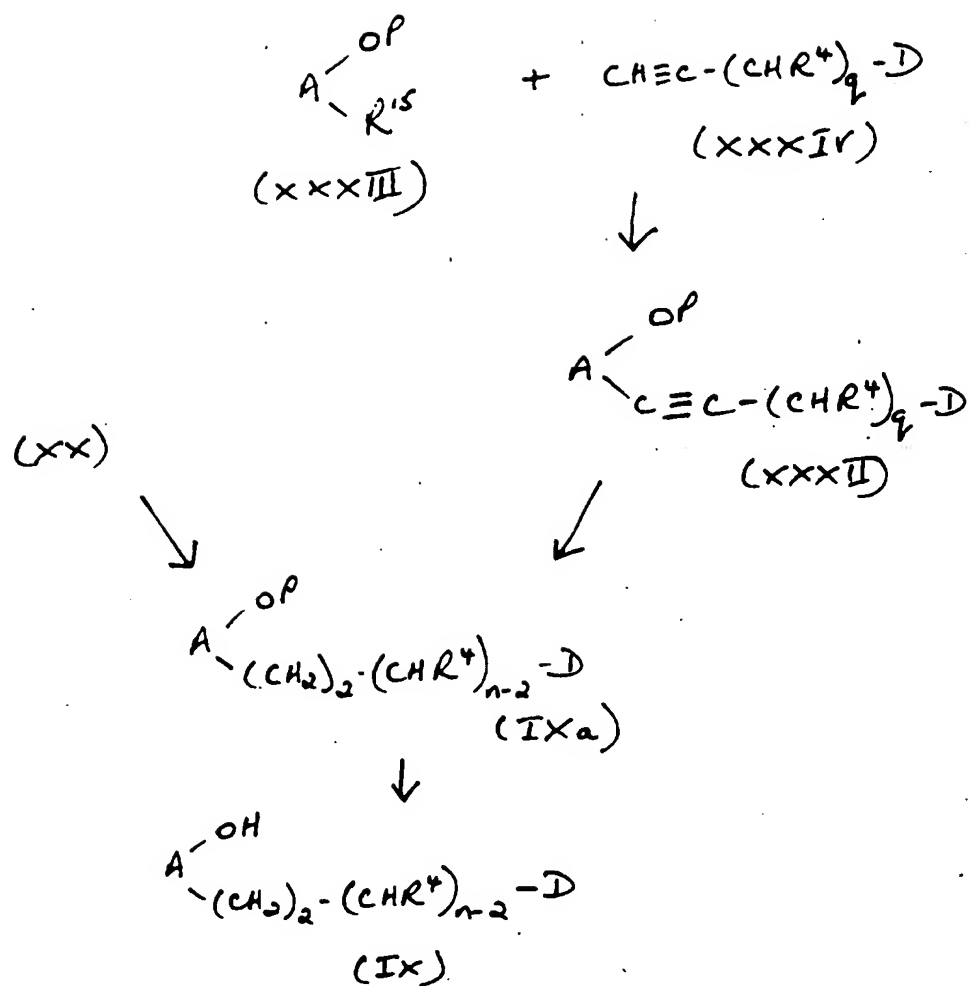 OP
A + CH≡C-(CHR⁴)q-D
R¹⁵
(XXXIII) (XXXIV)
OP
A
C≡C-(CHR⁴)q-D
(XXXII)
(XX)
OP
A
(CH₂)₂-(CHR⁴)n-2-D
(IXa)
OH
A
(CH₂)₂-(CHR⁴)n-2-D
(IX)